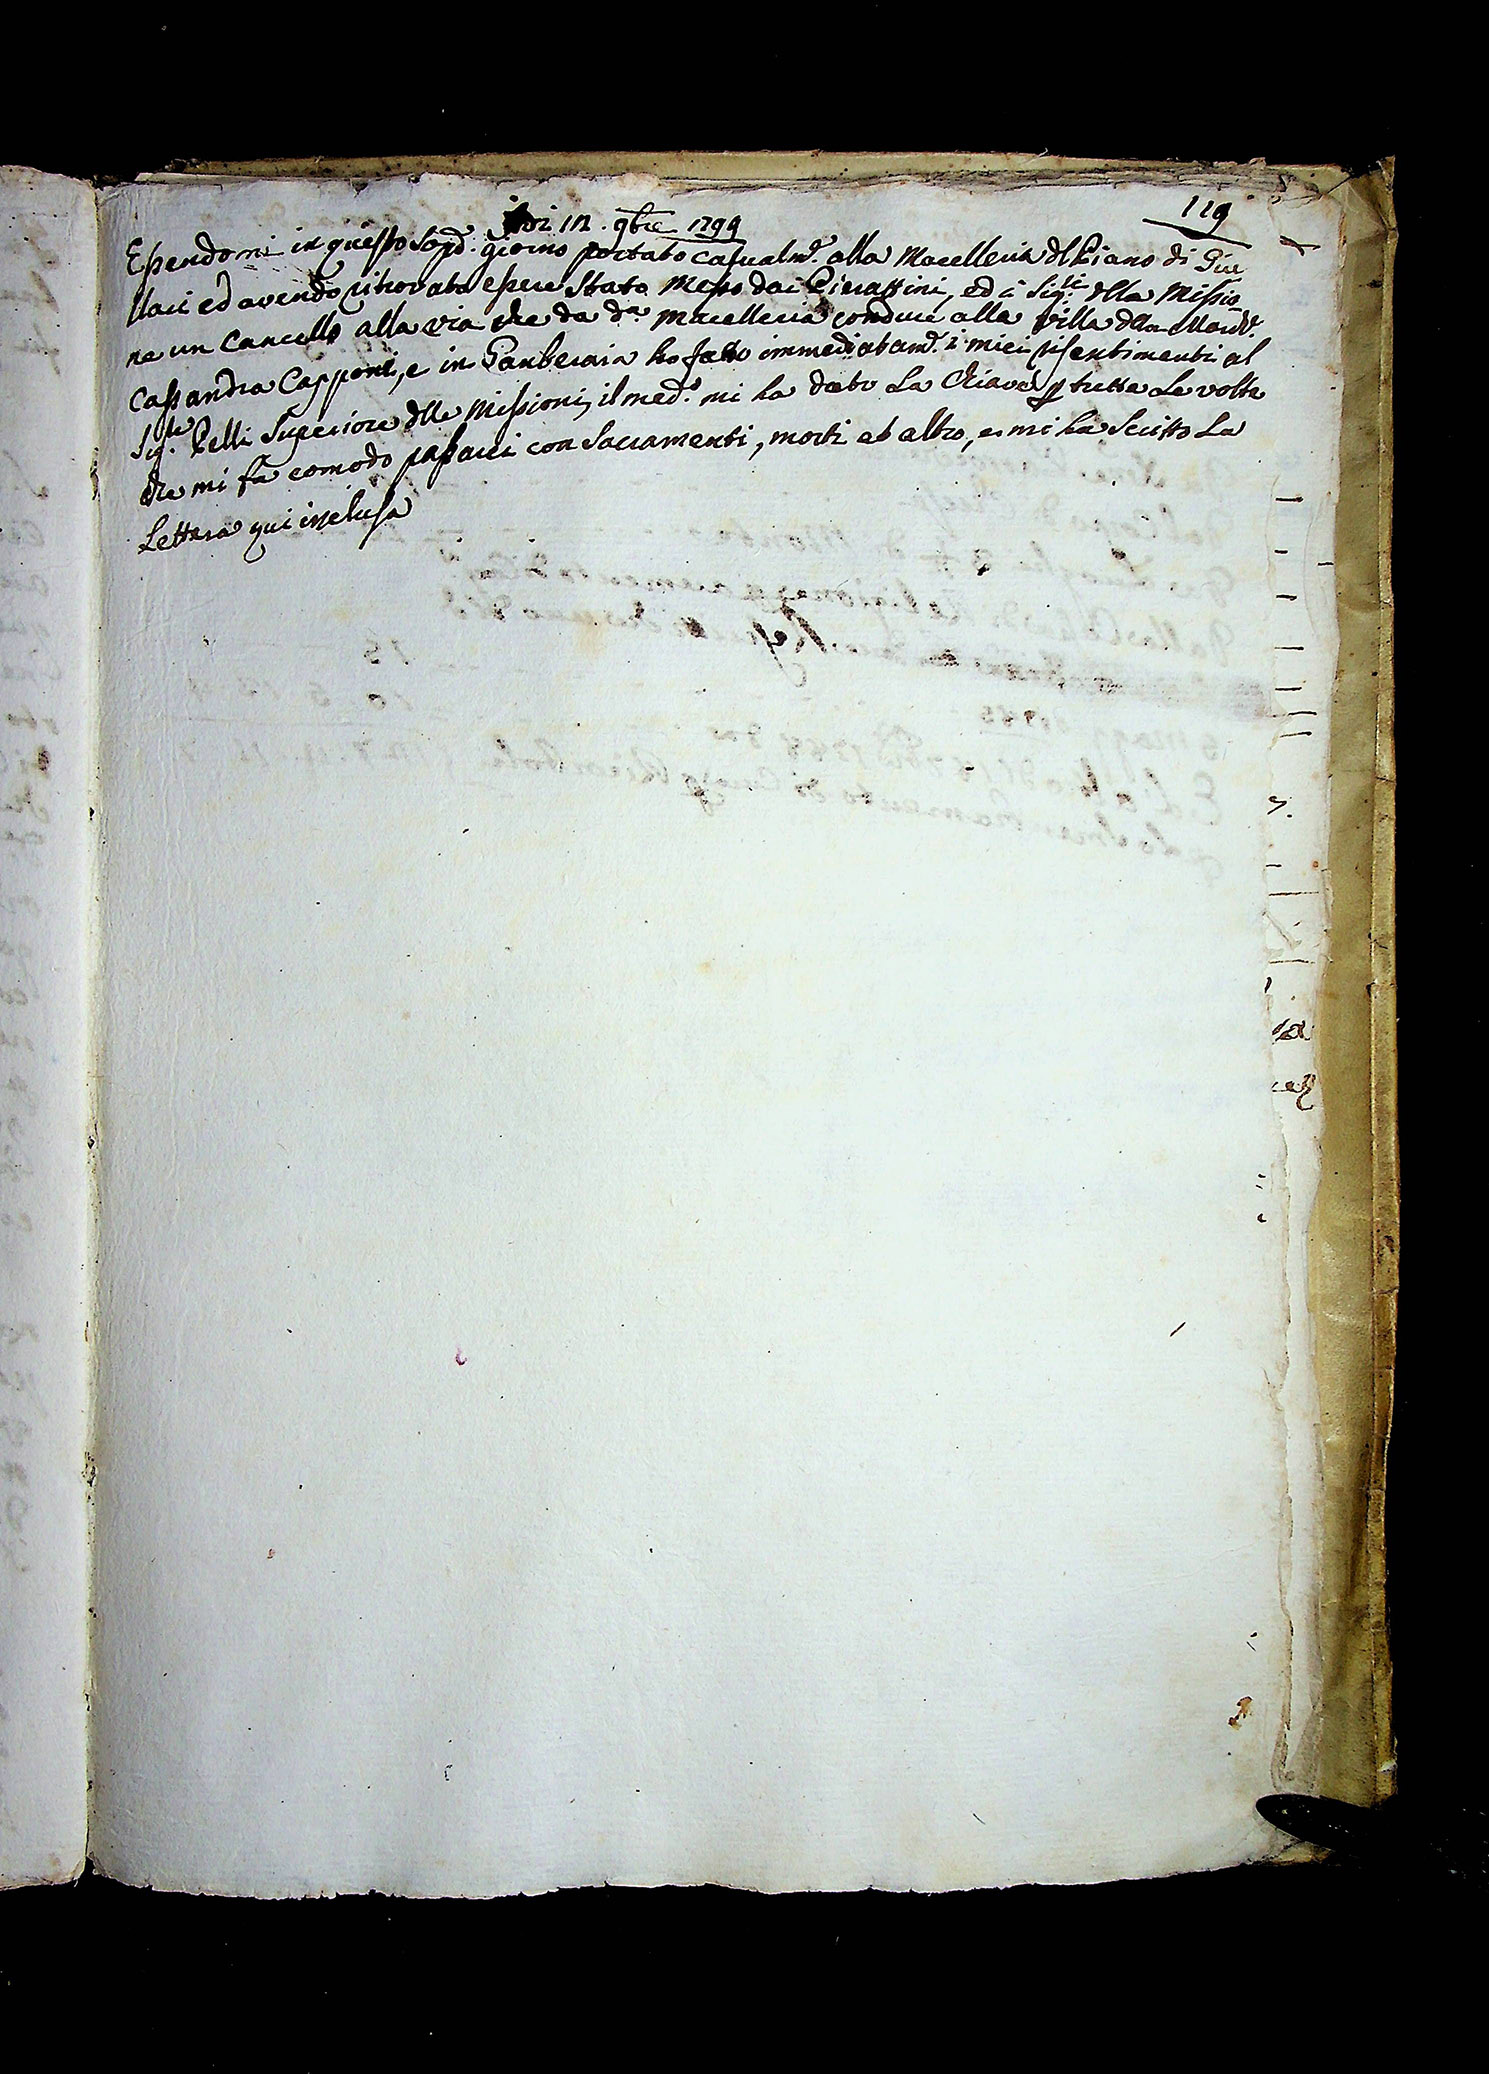 119
Adi 12. 9bre 1794
Essendomi in questo Sopd.o giorno portato casualm.e alla Macelleria del Piano di Giu
llari ed avendo ritrovato essere Stato Messo dai Pierattini, ed i Sig.ri della Missio
ne un Cancello alla via che da d.a macelleria conduce alla villa della March.
Cassandra Capponi, e in Gamberaia ho fatto immediatam.e i miei risentimenti al
Sig.re Pelli Superiore delle Missioni, il med.o mi ha dato La Chiave p tutte Le volte
che mi fa comodo passarci con Sacramenti, morti et altro, e mi ha Scritto La
Lettera qui inclusa